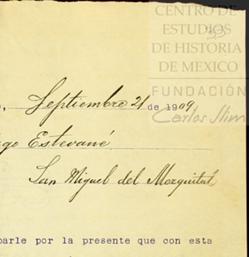 CENTRO DE
ESTUDIOS
DE HISTORIA
DE MEXICO
FUNDACIÓN
Carlos Slim
Septiembre 21 de 1909
Estevané
San Miguel del Mezquital
parle por la presente que con esta